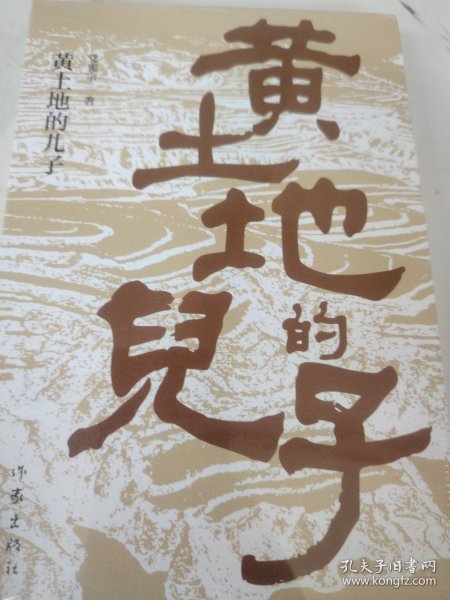 黄土地的兒子
黄土地的儿子
著
作家出版社
孔夫子旧书网
www.kongfz.com